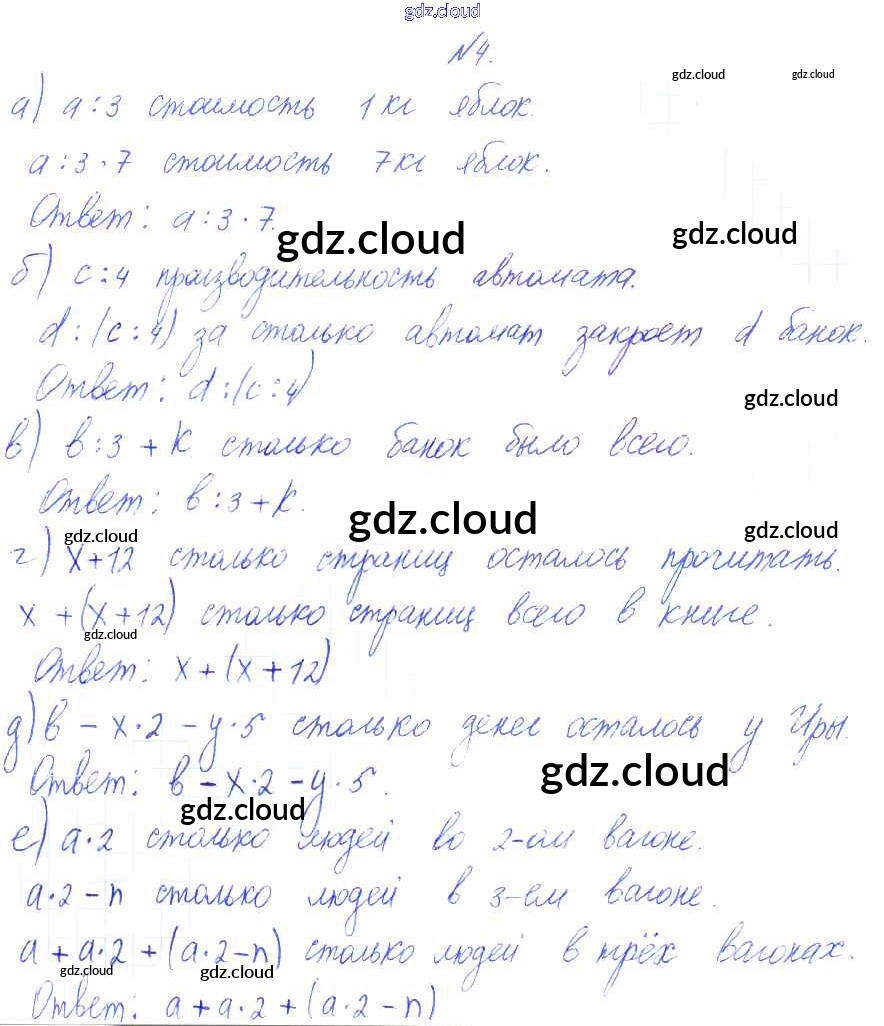 gdz.cloud
№4.
gdz.cloud gdz.cloud
а) a:3 стоимость 1кг яблок.
a:3·7 стоимость 7кг яблок.
Ответ: a:3·7.
gdz.cloud gdz.cloud
б) c:4 производительность автомата.
d:(c:4) за столько автомат закроет d банок.
Ответ: d:(c:4)
gdz.cloud
в) b:3+k столько банок было всего.
Ответ: b:3+k.
gdz.cloud gdz.cloud gdz.cloud
г) x+12 столько страниц осталось прочитать.
x+(x+12) столько страниц всего в книге.
gdz.cloud
Ответ: x+(x+12)
д) b-x·2-y·5 столько денег осталось у Иры.
Ответ: b-x·2-y·5.
gdz.cloud
gdz.cloud
е) a·2 столько людей во 2-ом вагоне.
a·2-n столько людей в 3-ем вагоне.
a+a·2+(a·2-n) столько людей в трёх вагонах.
gdz.cloud gdz.cloud
Ответ: a+a·2+(a·2-n)